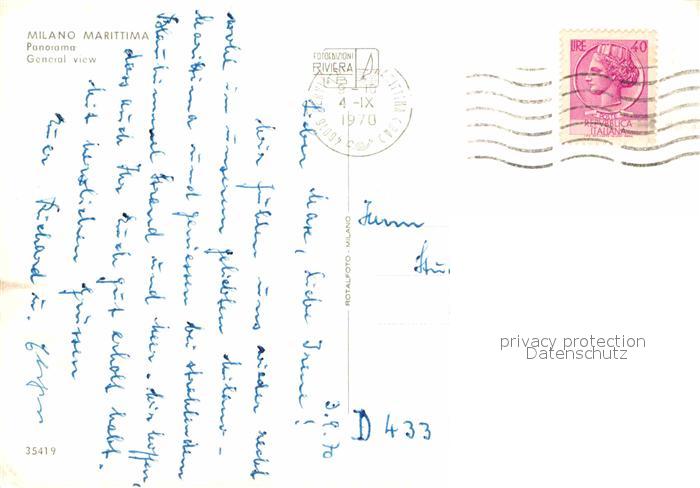 MILANO MARITTIMA
Panorama
General view
FOTOEDIZIONI
RIVIERA
4-IX
1970
LIRE 40
POSTE
REPVBBLICA
ITALIANA
3.9.70
Lieber Max, liebe Irene!
Wir fühlen uns wieder recht
wohl in unserem geliebten Milano-
Marittima und geniessen bei strahlendem
Blauhimmel Strand und Meer. Wir hoffen,
dass auch Ihr Euch gut erholt habt.
Mit herzlichen Grüssen
Euer Richard u.
ROTALFOTO - MILANO
Herrn
D 433
privacy protection
Datenschutz
35419